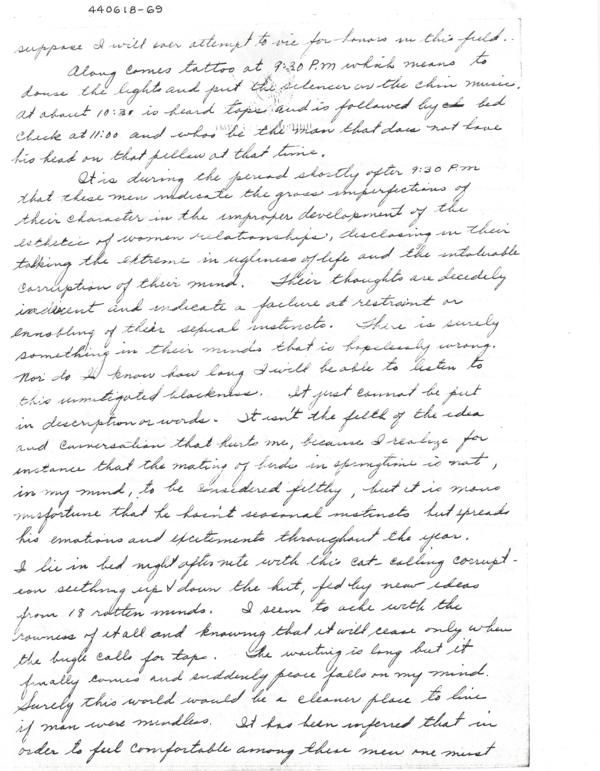 440618-69
suppose I will ever attempt to vie for honors in this field..
Along comes tattoo at 9:30 P.M which means to
douse the lights and put the silencer on the chin music.
At about 10:30 is heard taps and is followed by bed
check at 11:00 and whoo be the man that does not have
his head on that pillow at that time.
It is during the period shortly after 9:30 P.M
that these men indicate the gross imperfections of
their character in the improper development of the
esthetic of women relationships, disclosing in their
talking the extreme in ugliness of life and the intolerable
corruption of their mind. Their thoughts are decidely
indecent and indicate a failure at restraint or
ennobling of their sexual instincts. There is surely
something in their minds that is hopelessly wrong.
Nor do I know how long I will be able to listen to
this unmitigated blackness. It just cannot be put
in description or words. It isn't the filth of the idea
and conversation that hurts me, because I realize for
instance that the mating of birds in springtime is not,
in my mind, to be considered filthy, but it is mans
misfortune that he hasn't seasonal instincts but spreads
his emotions and excitements throughout the year.
I lie in bed night after nite with this cat-calling corrupt-
ion seething up & down the hut, fed by new ideas
from 18 rotten minds. I seem to ache with the
rawness of it all and knowing that it will cease only when
the bugle calls for taps. The waiting is long but it
finally comes and suddenly peace falls on my mind.
Surely this world would be a cleaner place to live
if man were mindless. It has been inferred that in
order to feel comfortable among these men one must